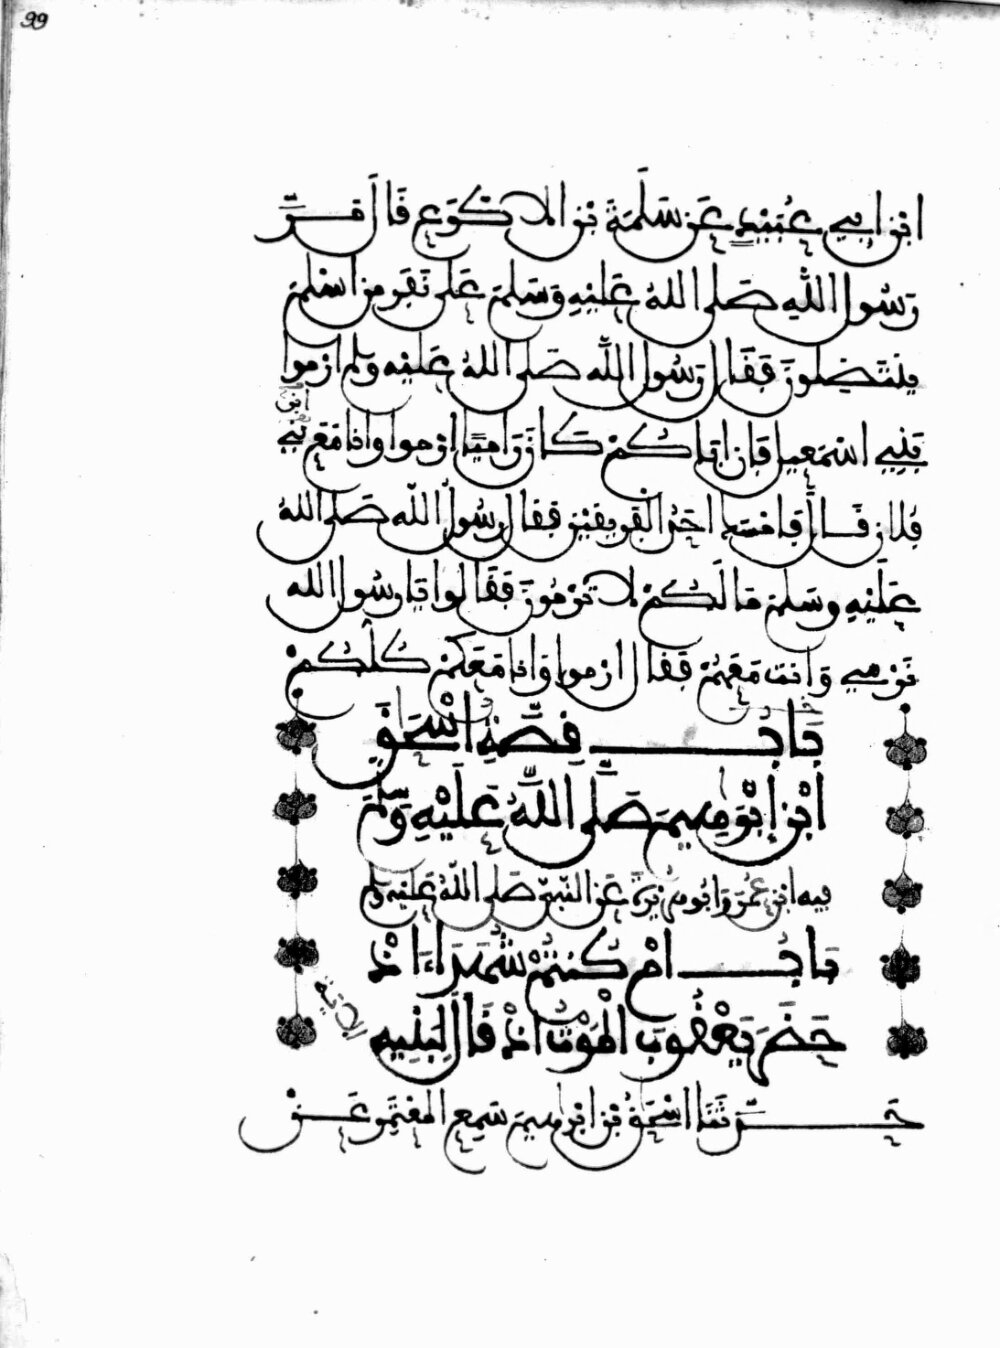 99
ابن ابي عُبَيْدٍ عَن سَلَمَةَ بْنِ الاَكْوَعِ قَالَ مَرَّ
رَسُولُ اللَّهِ صَلى اللهُ عَلَيْهِ وَسَلمَ عَلَى نَفَرٍ مِن اسْلَمَ
يَنْتَضِلُونَ فَقَالَ رَسُولُ اللَّه صَلى اللهُ عَلَيْهِ وسلم ارْمُوا
بَنِي اسْمَعِيلَ فَإِن ابَاكُمْ كَانَ رَامِيًا ارْمُوا وَانَا مَعَ بَنِي
ابْن
فُلانٍ قَالَ فَامْسَكَ احَدُ الْفَرِيقَيْنِ فقال رَسُولُ اللَّه صَلى اللهُ
عَلَيْهِ وسَلمَ مَا لَكُمْ لا تَرْمُونَ فَقَالُوا يَا رسُولَ الله
نَرْمِي وَأنتَ مَعَهُمْ فَقَالَ ارْمُوا وَانَا مَعَكُمْ كُلِّكُمْ
بَابُ قِصَّةِ اسْحَقَ
ابْنِ إبْرَهِيمَ صَلَّى اللَّهُ عَلَيْهِ وَسَلَّمَ
فِيهِ ابنُ عُمَرَ وَابُو هُرَيْرَةَ عَنِ النَّبِيِّ صَلى اللهُ عَلَيْهِ وسلم
بَابُ امْ كُنْتُمْ شُهَدَاءَ اذْ
حَضَرَ يَعْقُوبَ الْمَوْتُ اذْ قَالَ لِبَنِيهِ
الاية
حَدَّثَنَا اسْحَقُ بْنُ ابْرَهِيمَ سَمِعَ الْمُعْتَمِرَ عَنْ